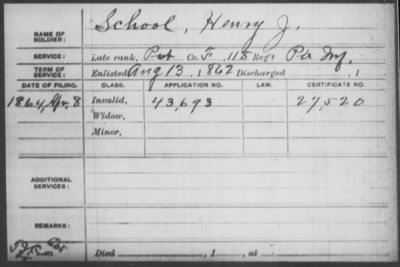 NAME OF SOLDIER: School, Henry J.
SERVICE: Late rank, Pvt Co. F, 118 Reg't Pa Inf.
TERM OF SERVICE: Enlisted Aug 13, 1862 Discharged , 1
DATE OF FILING. CLASS. APPLICATION NO. LAW. CERTIFICATE NO.
1864, Apr. 8 Invalid, 43,693 27,520
Widow,
Minor,
ADDITIONAL SERVICES:
REMARKS:
Died , 1 , at